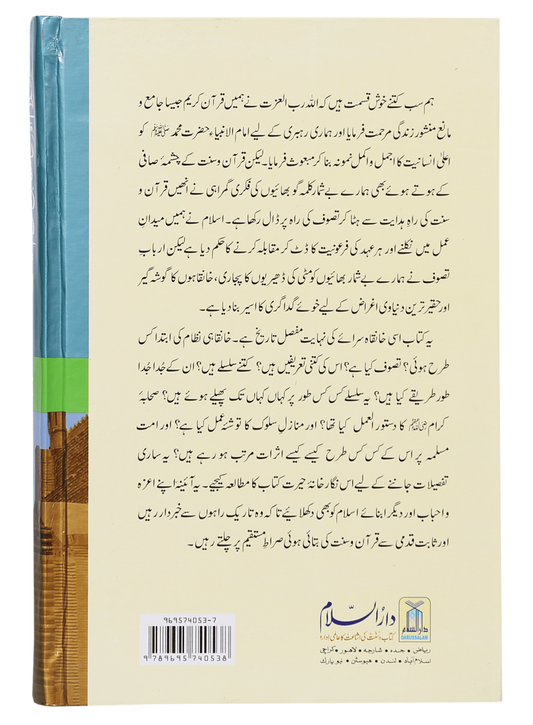 ہم سب کتنے خوش قسمت ہیں کہ اللہ رب العزت نے ہمیں قرآن کریم جیسا جامع و
مانع منشور زندگی مرحمت فرمایا اور ہماری رہبری کے لیے امام الانبیاء حضرت محمد ﷺ کو
اعلیٰ انسانیت کا اجمل و اکمل نمونہ بنا کر مبعوث فرمایا۔ لیکن قرآن وسنت کے چشمۂ صافی
کے ہوتے ہوئے بھی ہمارے بے شمار کلمہ گو بھائیوں کی فکری گمراہی نے انھیں قرآن و
سنت کی راہِ ہدایت سے ہٹا کر تصوف کی راہ پر ڈال رکھا ہے۔ اسلام نے ہمیں میدانِ
عمل میں نکلنے اور ہر عہد کی فرعونیت کا ڈٹ کر مقابلہ کرنے کا حکم دیا ہے لیکن ارباب
تصوف نے ہمارے بے شمار بھائیوں کو مٹی کی ڈھیریوں کا پجاری، خانقاہوں کا گوشہ گیر
اور حقیر ترین دنیاوی اغراض کے لیے خوئے گداگری کا اسیر بنا دیا ہے۔
یہ کتاب اسی خانقاہ سرائے کی نہایت مفصل تاریخ ہے۔ خانقاہی نظام کی ابتدا کس
طرح ہوئی؟ تصوف کیا ہے؟ اس کی کتنی تعریفیں ہیں؟ کتنے سلسلے ہیں؟ ان کے جُدا جُدا
طور طریقے کیا ہیں؟ یہ سلسلے کس کس طور پر کہاں کہاں تک پھیلے ہوئے ہیں؟ صحابۂ
کرام کا دستور العمل کیا تھا؟ اور منازلِ سلوک کا توشۂ عمل کیا ہے؟ اور امت
مسلمہ پر اس کے کس کس طرح کیسے کیسے اثرات مرتب ہو رہے ہیں؟ یہ ساری
تفصیلات جاننے کے لیے اس نگار خانۂ حیرت کتاب کا مطالعہ کیجیے۔ یہ آئینہ اپنے اعزہ
و احباب اور دیگر ابنائے اسلام کو بھی دکھلائیے تاکہ وہ تاریک راہوں سے خبردار رہیں
اور ثابت قدمی سے قرآن وسنت کی بتائی ہوئی صراطِ مستقیم پر چلتے رہیں۔
969574053-7
9 789695 740538
دارالسلام
کتاب وسنت کی اشاعت کا عالمی ادارہ
ریاض • جدہ • شارجہ • لاہور • کراچی
اسلام آباد • لندن • ہیوسٹن • نیو یارک
دارالسلام
DARUSSALAM